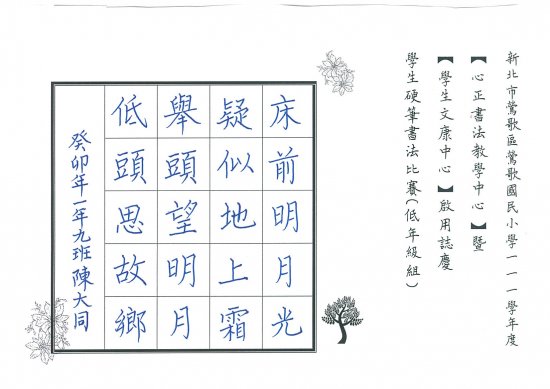 新北市鶯歌區鶯歌國民小學一一一學年度
【心正書法教學中心】暨
【學生文康中心】啟用誌慶
學生硬筆書法比賽(低年級組)
床前明月光
疑似地上霜
舉頭望明月
低頭思故鄉
癸卯年一年九班陳大同